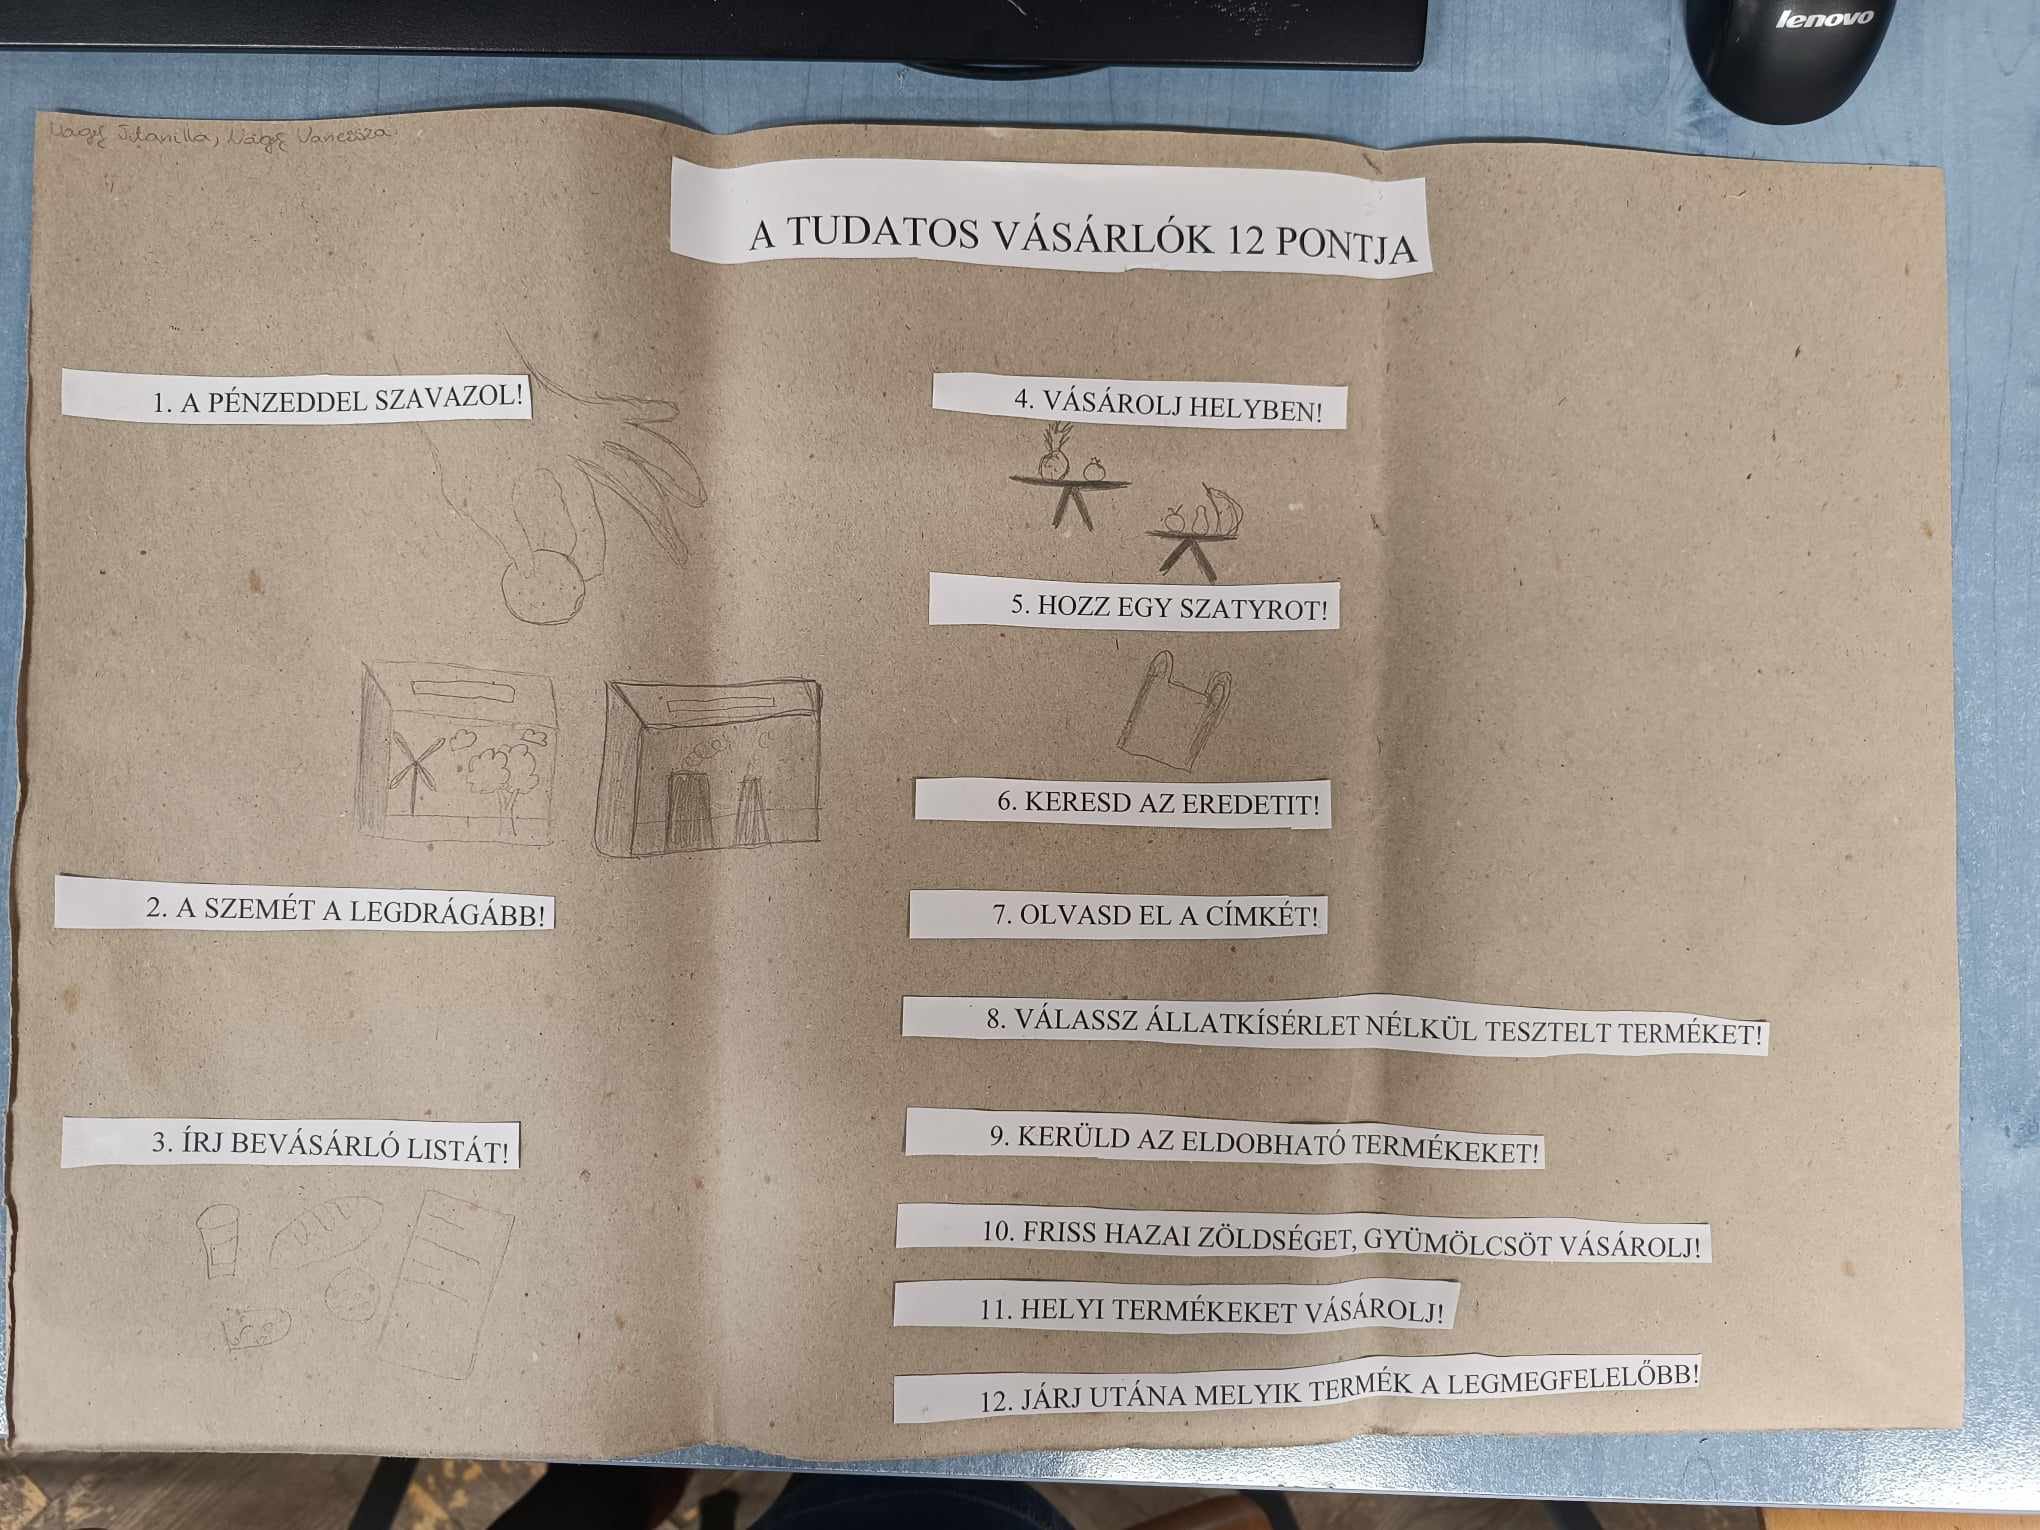 lenovo
Nagy Titanilla, Nagy Vanessza
A TUDATOS VÁSÁRLÓK 12 PONTJA
1. A PÉNZEDDEL SZAVAZOL!
2. A SZEMÉT A LEGDRÁGÁBB!
3. ÍRJ BEVÁSÁRLÓ LISTÁT!
4. VÁSÁROLJ HELYBEN!
5. HOZZ EGY SZATYROT!
6. KERESD AZ EREDETIT!
7. OLVASD EL A CÍMKÉT!
8. VÁLASSZ ÁLLATKÍSÉRLET NÉLKÜL TESZTELT TERMÉKET!
9. KERÜLD AZ ELDOBHATÓ TERMÉKEKET!
10. FRISS HAZAI ZÖLDSÉGET, GYÜMÖLCSÖT VÁSÁROLJ!
11. HELYI TERMÉKEKET VÁSÁROLJ!
12. JÁRJ UTÁNA MELYIK TERMÉK A LEGMEGFELELŐBB!